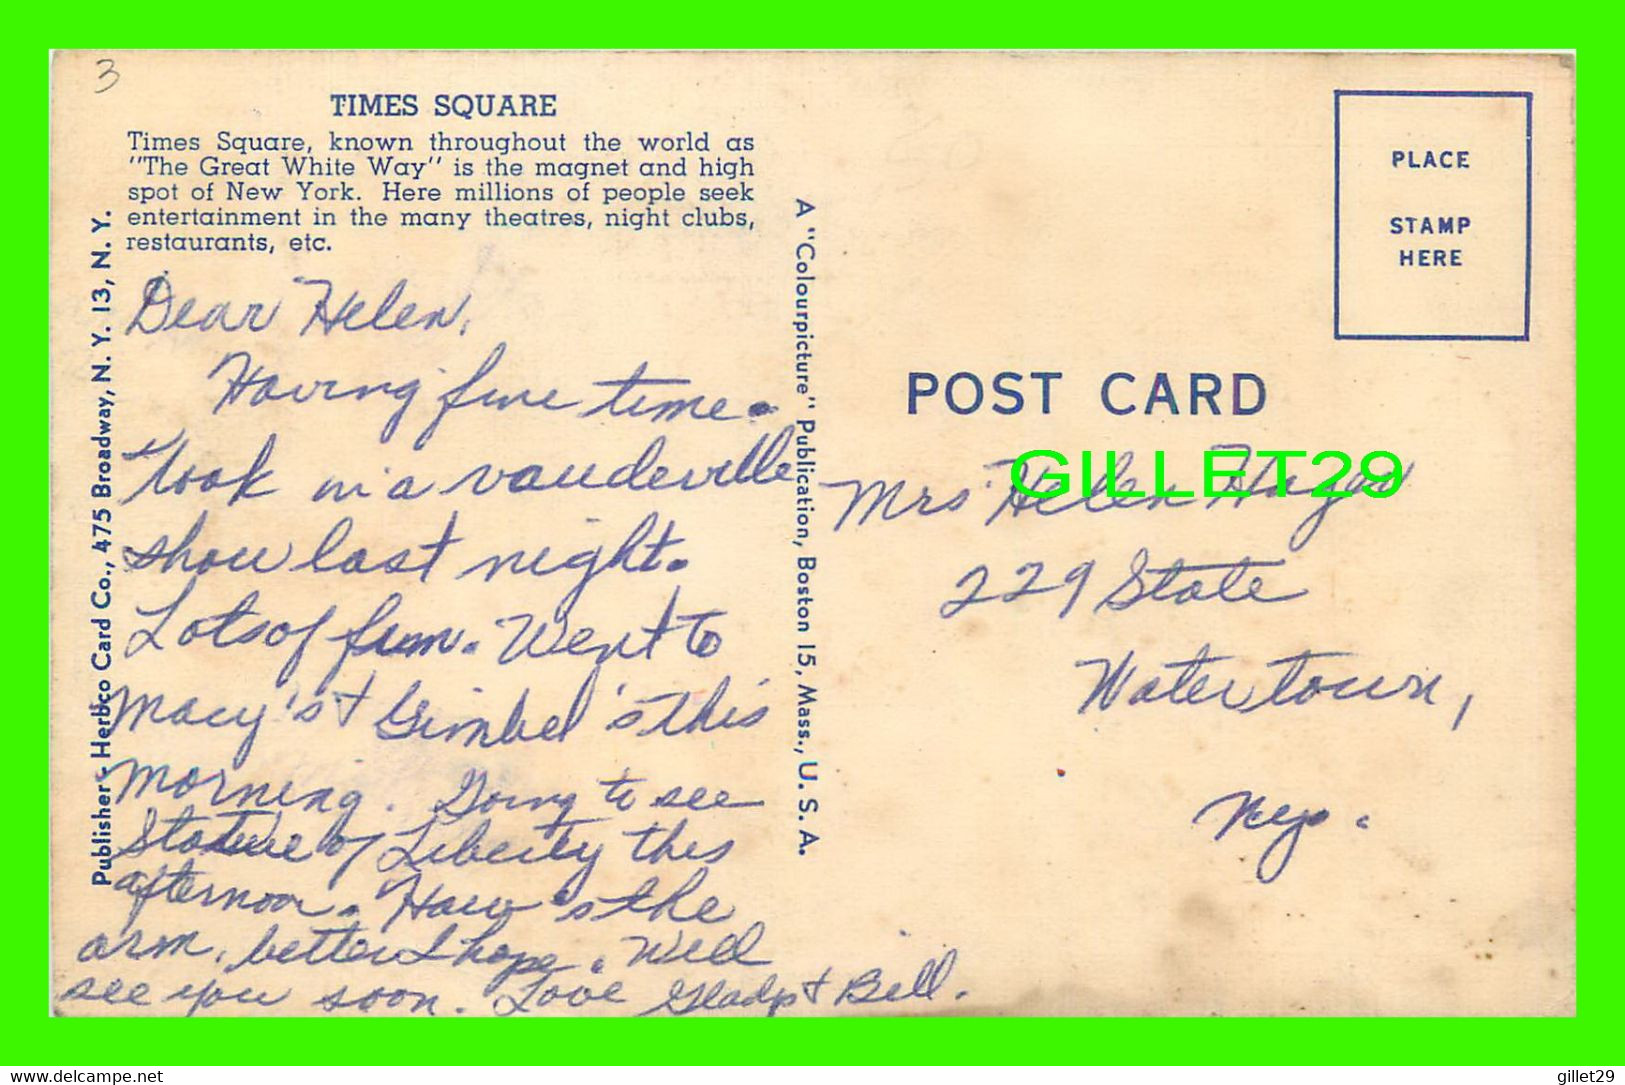 3
TIMES SQUARE
Times Square, known throughout the world as
"The Great White Way" is the magnet and high
spot of New York. Here millions of people seek
entertainment in the many theatres, night clubs,
restaurants, etc.
Dear Helen,
Having fine time.
Took in a vaudeville
show last night.
Lots of fun. Went to
Macy's + Gimbel's this
morning. Going to see
Statue of Liberty this
afternoon. How's the
arm, better I hope. Will
see you soon. Love Gladys + Bill.
Publisher - Herbco Card Co., 475 Broadway, N. Y. 13, N. Y.
A "Colourpicture" Publication, Boston 15, Mass., U. S. A.
PLACE
STAMP
HERE
POST CARD
GILLET29
Mrs Helen
229 State
Watertown,
N.Y.
www.delcampe.net
gillet29